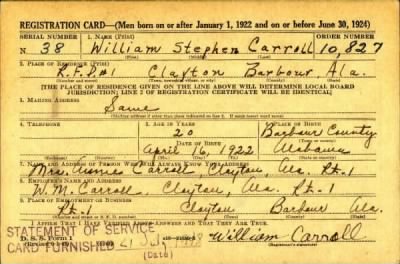 REGISTRATION CARD—(Men born on or after January 1, 1922 and on or before June 30, 1924)
SERIAL NUMBER 1. NAME (Print) ORDER NUMBER
N 38 William Stephen Carroll 10,827
(First) (Middle) (Last)
2. PLACE OF RESIDENCE (Print)
R.F.D#1 Clayton Barbour Ala.
[THE PLACE OF RESIDENCE GIVEN ON THE LINE ABOVE WILL DETERMINE LOCAL BOARD
JURISDICTION; LINE 2 OF REGISTRATION CERTIFICATE WILL BE IDENTICAL]
3. MAILING ADDRESS
Same
4. TELEPHONE 5. AGE IN YEARS
20 Barbour County
DATE OF BIRTH
April 16, 1922 Alabama
7. NAME AND ADDRESS OF PERSON WHO WILL ALWAYS KNOW YOUR ADDRESS
Mrs. Carroll, Clayton, Ala. Rt. 1
8. EMPLOYER'S NAME AND ADDRESS
W.M. Carroll, Clayton, Ala. Rt. 1
9. PLACE OF EMPLOYMENT OR BUSINESS
Rt. 1 Clayton Barbour Ala.
I AFFIRM THAT I HAVE VERIFIED ABOVE ANSWERS AND THAT THEY ARE TRUE.
STATEMENT OF SERVICE
CARD FURNISHED
(Date)
D. S. S. Form 1
William Carroll
(Registrant's signature)